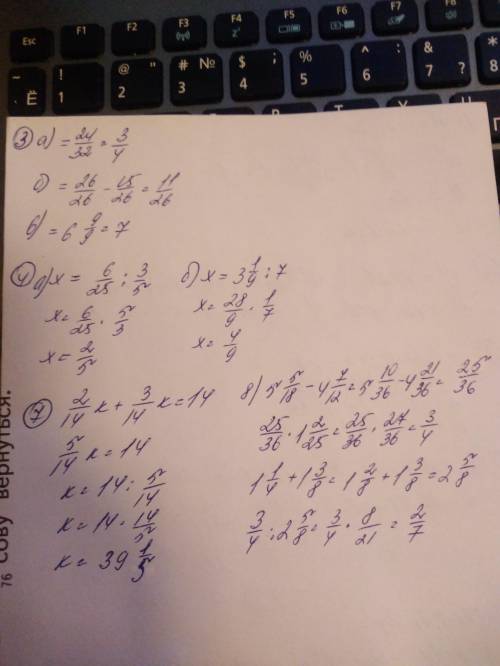 Esc F1 F2 F3 F4 F5 F6 F7 F8
~ Ё ! 1 @ " 2 # № 3 $ ; 4 % 5 ^ : 6 & ? 7 * 8
3 а) = 24/32 = 3/4
б) = 26/26 - 15/26 = 11/26
в) = 6 9/9 = 7
4 а) x = 6/25 : 3/5
x = 6/25 · 5/3
x = 2/5
б) x = 3 1/9 : 7
x = 28/9 · 1/7
x = 4/9
7 2/14 к + 3/14 к = 14
5/14 к = 14
к = 14 : 5/14
к = 14 · 14/5
к = 39 1/5
8) 5 5/18 - 4 7/12 = 5 10/36 - 4 21/36 = 25/36
25/36 · 1 2/25 = 25/36 · 27/36 = 3/4
1 1/4 + 1 3/8 = 1 2/8 + 1 3/8 = 2 5/8
3/4 : 2 5/8 = 3/4 · 8/21 = 2/7
76 сову вернуться.